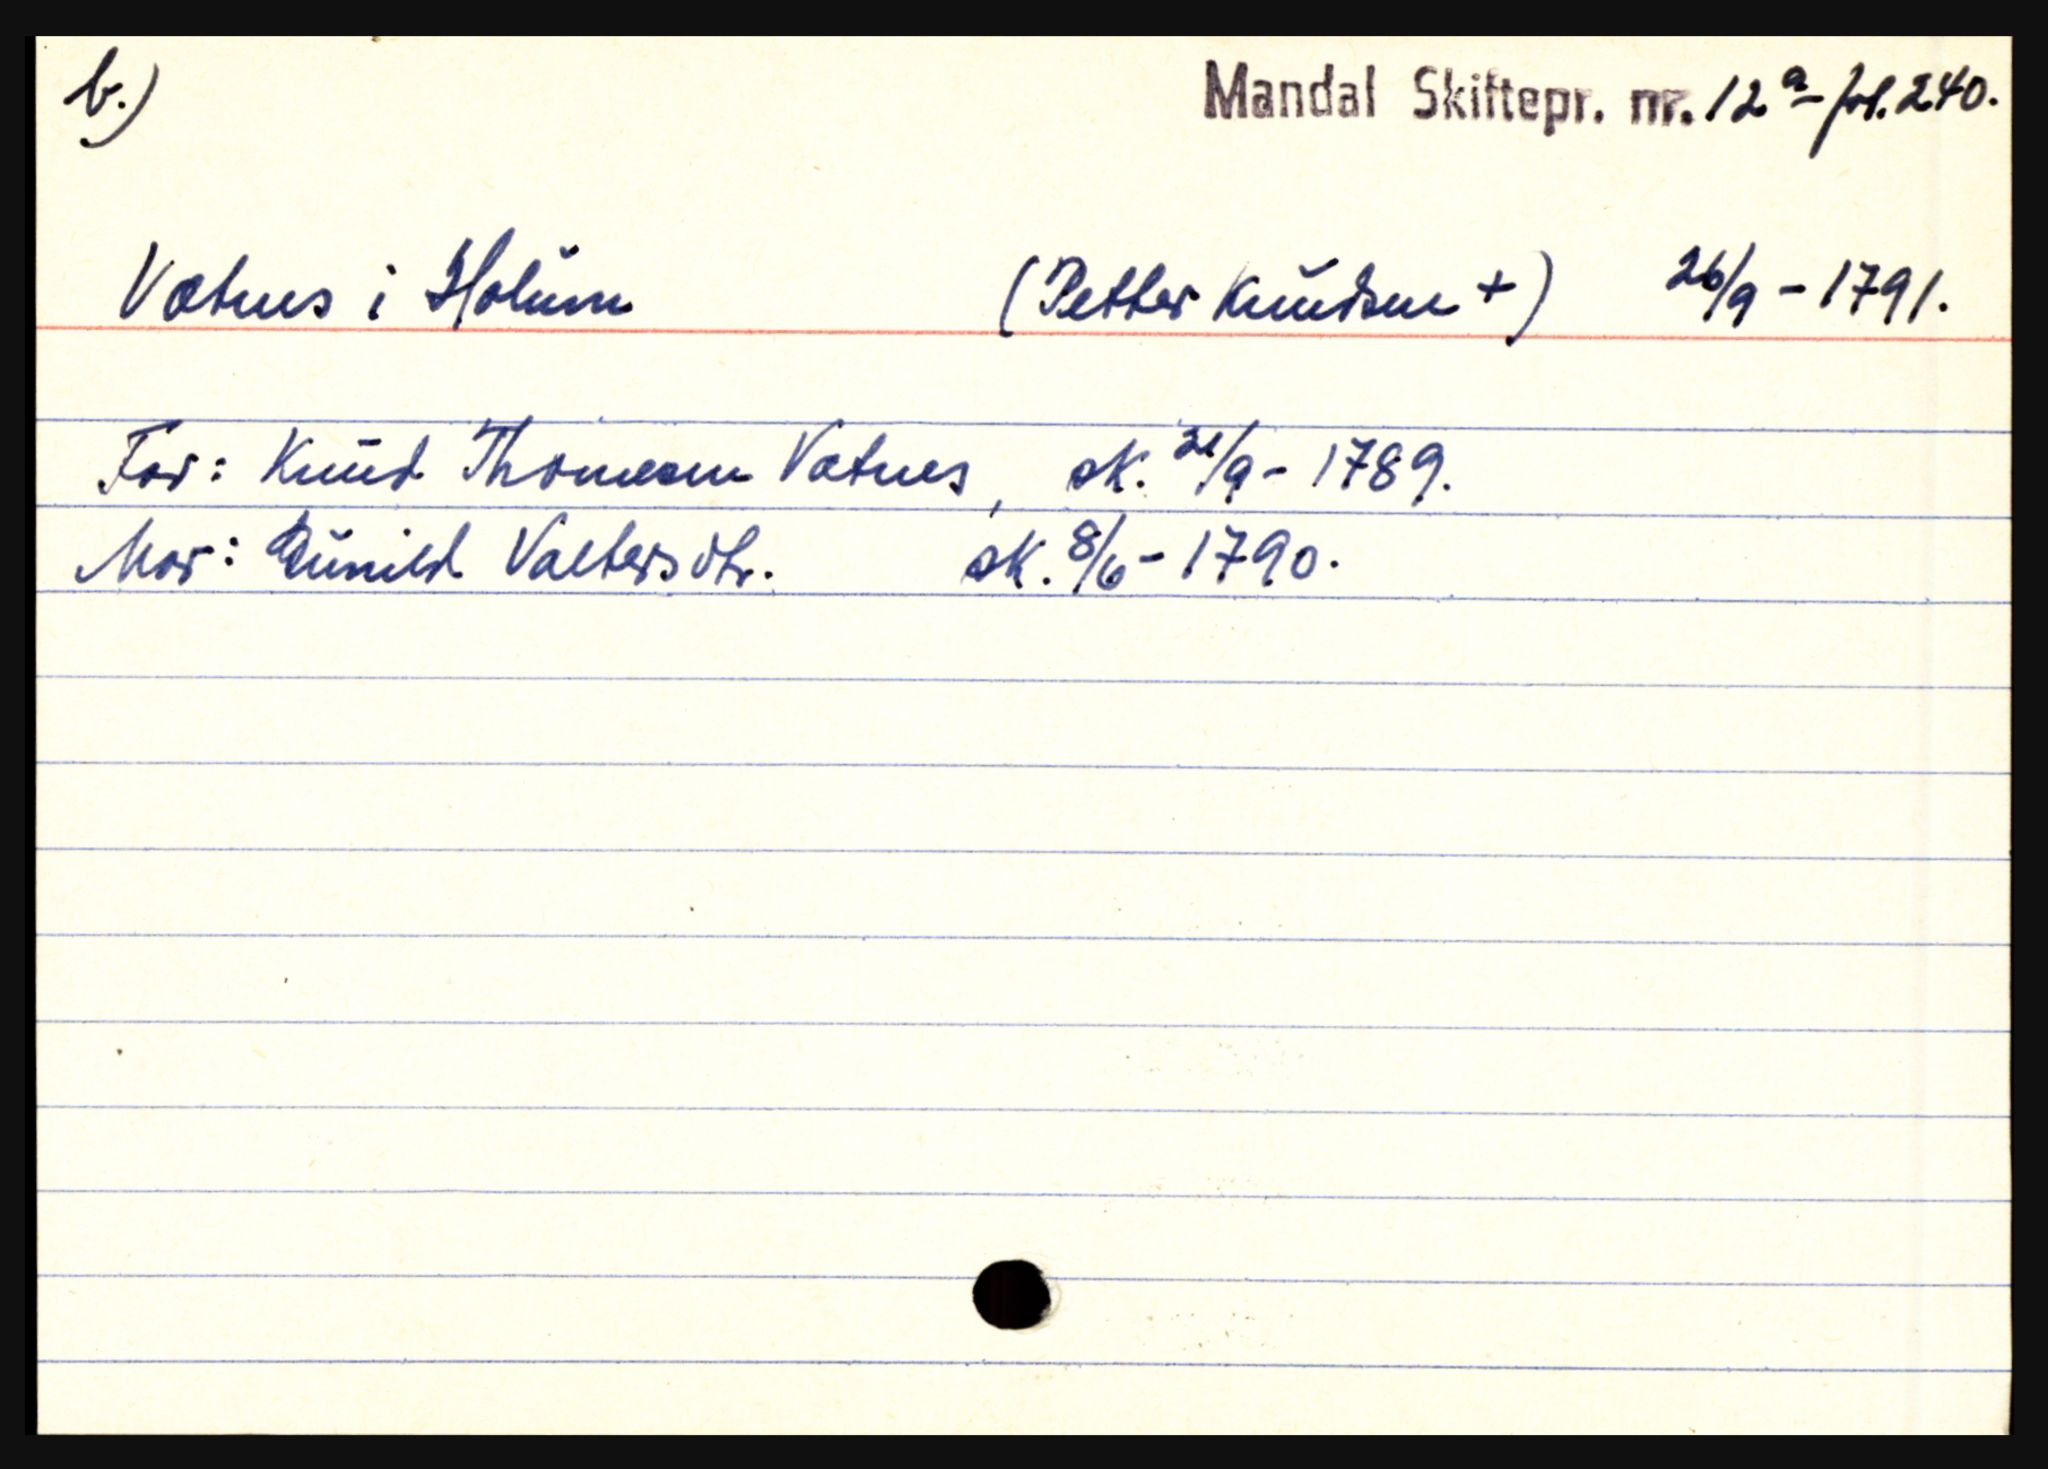 b.)
Mandal Skiftepr. nr. 12a fol. 240.
Vatnes i Holum (Petter Knudsen +) 26/9 - 1791.
Far: Knud Thomesen Vatnes, sk. 21/9 - 1789.
Mor: Gunild Valtersdtr. sk. 8/6 - 1790.